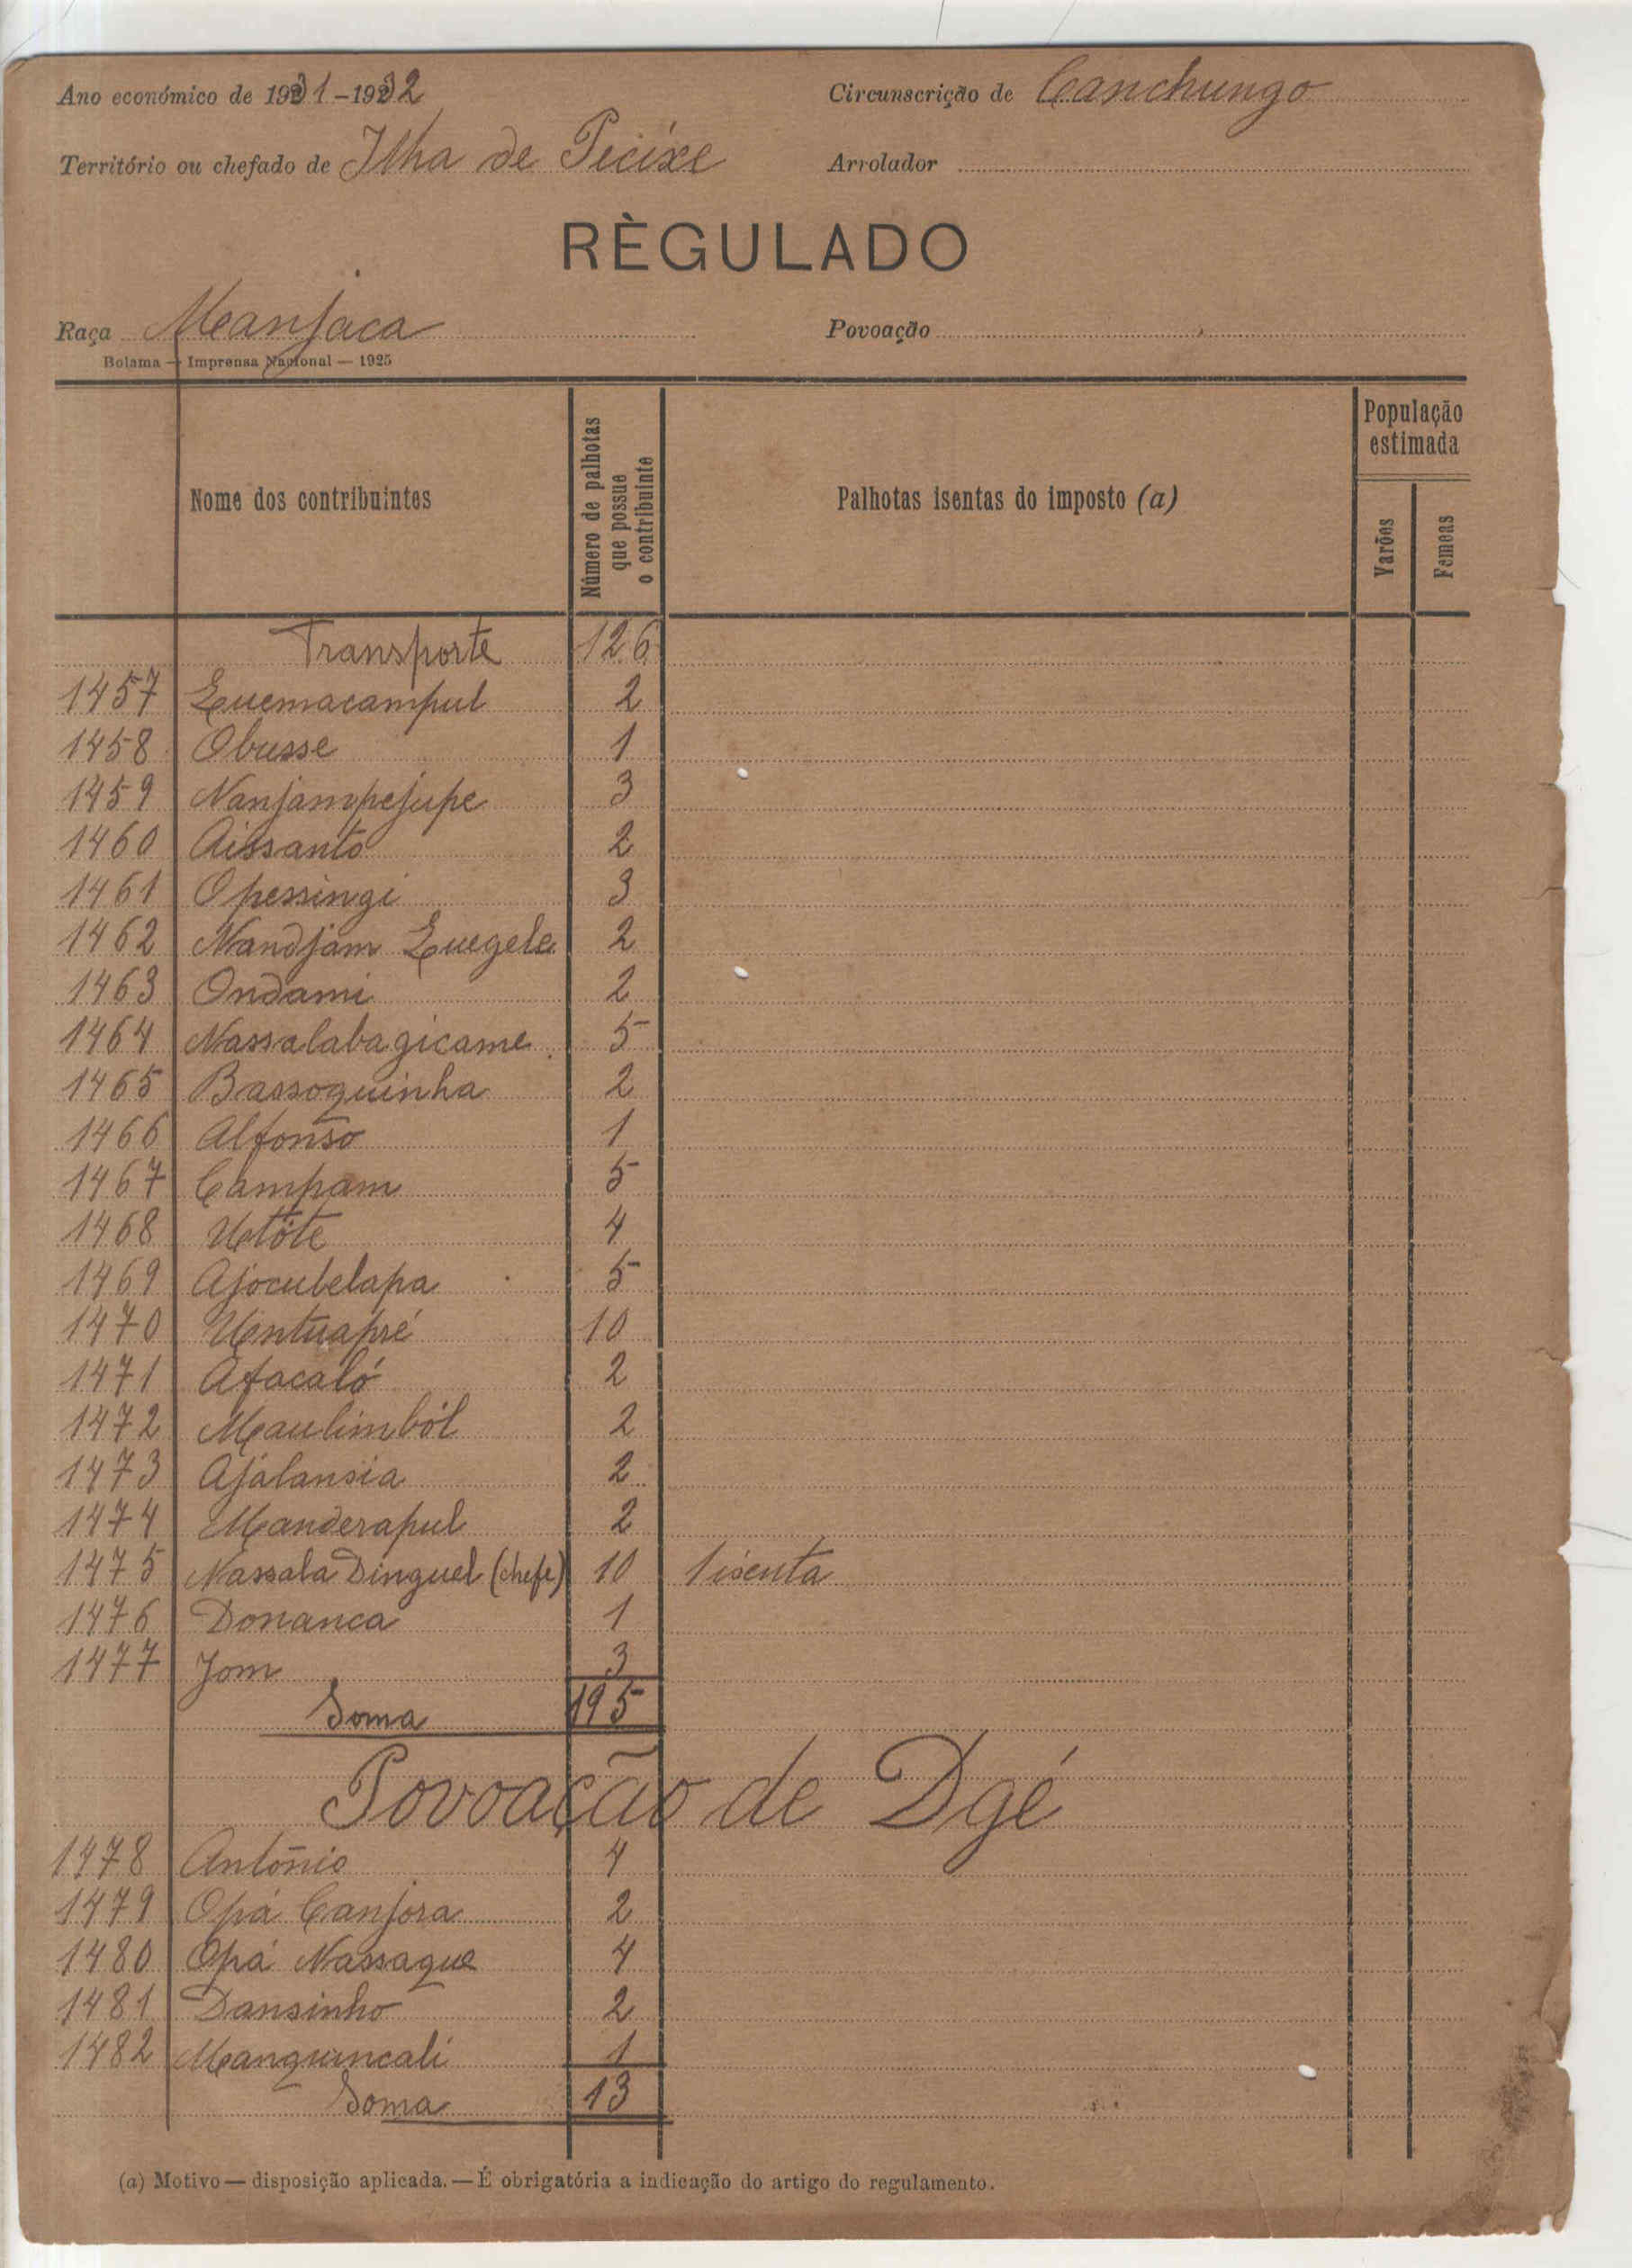 Ano económico de 1931-1932 Circunscrição de Canchungo
Território ou chefado de Ilha de Pecixe Arrolador
RÈGULADO
Raça Manjaca Povoação
Bolama — Imprensa Nacional — 1925
Nome dos contribuintes Número de palhotas que possue o contribuinte Palhotas isentas do imposto (a) População estimada Varões Femeas
Transporte 126
1457 Quemacampul 2
1458 Obusse 1
1459 Nanjampejupe 3
1460 Aissanto 2
1461 Opessingi 3
1462 Nandjam Quegele 2
1463 Ondami 2
1464 Nassalabagicame 5
1465 Bassoquinha 2
1466 Alfonso 1
1467 Campam 5
1468 Utóte 4
1469 Ajocubelapa 5
1470 Untuapré 10
1471 Afacaló 2
1472 Maulimból 2
1473 Ajálansia 2
1474 Manderapul 2
1475 Nassala Dinguel (chefe) 10 1 isenta
1476 Donanca 1
1477 Jom 3
Soma 195
Povoação de Dgé
1478 António 4
1479 Opá Canjora 2
1480 Opá Nassaque 4
1481 Dansinho 2
1482 Manquincali 1
Soma 13
(a) Motivo — disposição aplicada. — É obrigatória a indicação do artigo do regulamento.